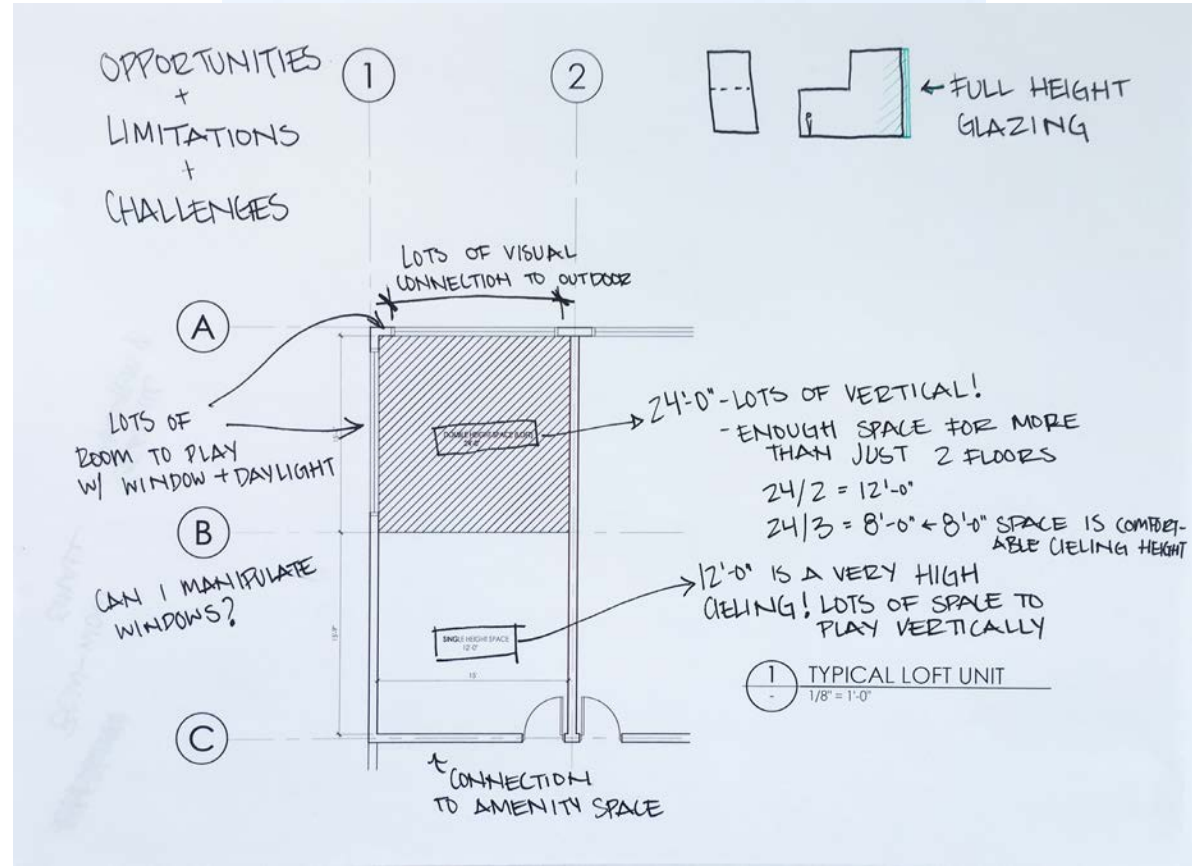 OPPORTUNITIES
+
LIMITATIONS
+
CHALLENGES
1
2
← FULL HEIGHT
GLAZING
LOTS OF VISUAL
CONNECTION TO OUTDOOR
A
LOTS OF
ROOM TO PLAY
W/ WINDOW + DAYLIGHT
DOUBLE HEIGHT SPACE (LOFT)
24'-0"
24'-0" - LOTS OF VERTICAL!
- ENOUGH SPACE FOR MORE
THAN JUST 2 FLOORS
24/2 = 12'-0"
24/3 = 8'-0" ← 8'-0" SPACE IS COMFORT-
ABLE CIELING HEIGHT
B
CAN I MANIPULATE
WINDOWS?
12'-0" IS A VERY HIGH
CIELING! LOTS OF SPACE TO
PLAY VERTICALLY
SINGLE HEIGHT SPACE
12'-0"
15'
1 TYPICAL LOFT UNIT
- 1/8" = 1'-0"
C
CONNECTION
TO AMENITY SPACE